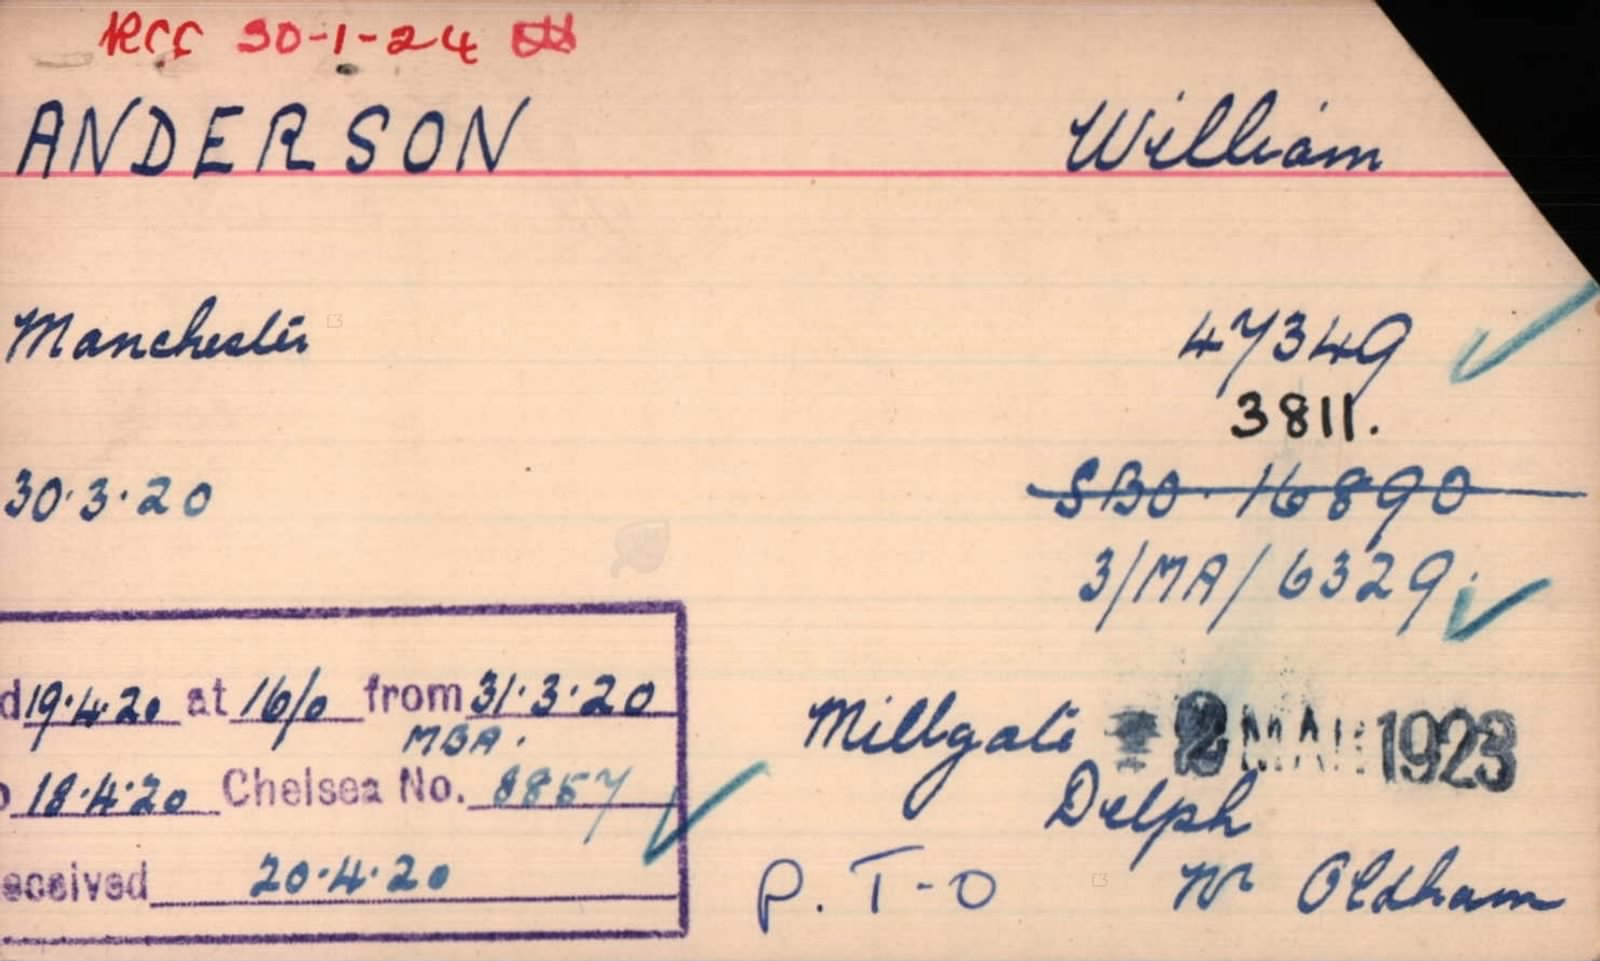 RCC 30-1-24
ANDERSON William
Manchester 47349
3811.
30.3.20 SBO. 16890
3/MA/6329.
d 19.4.20 at 16/0 from 31.3.20
MBA.
Millgate 2 MAR 1923
o 18.4.20 Chelsea No. 8857
Delph
eceived 20.4.20
P.T-O Nr Oldham